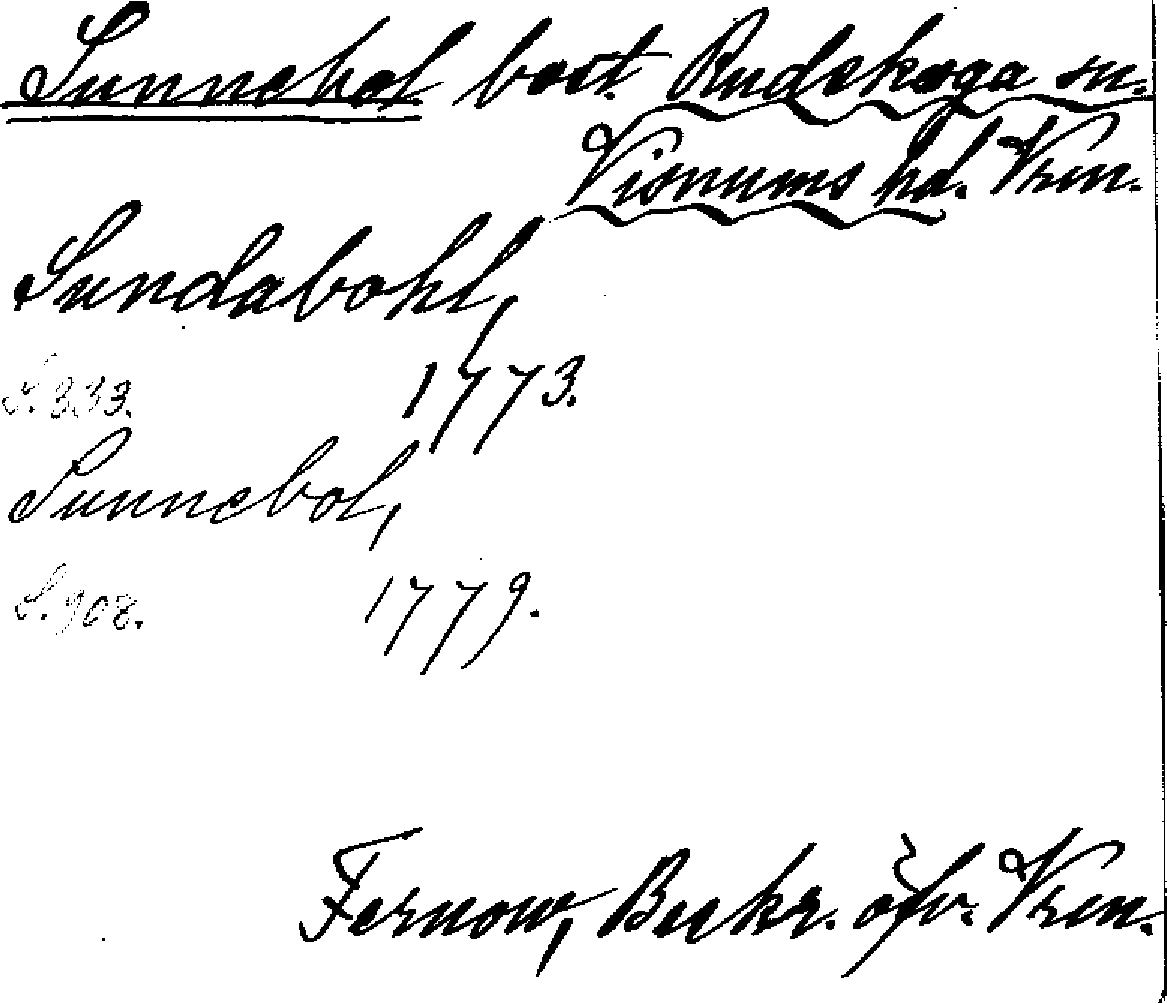 Sunnebol bost. Rudskoga sn.
Visnums hd. Vrm.
Sundabohl,
S. 833. 1773.
Sunnebol,
S. 908. 1779.
Fernow, Beskr. öfv. Vrm.